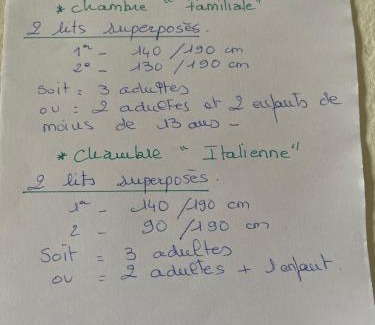 * Chambre " familiale"
2 lits superposés.
1er - 140 /190 cm
2e - 130 /190 cm
Soit = 3 adultes
ou = 2 adultes et 2 enfants de
moins de 13 ans -
* Chambre " Italienne"
2 lits superposés.
1er - 140 /190 cm
2 - 90 /190 cm
Soit = 3 adultes
ou = 2 adultes + 1 enfant.